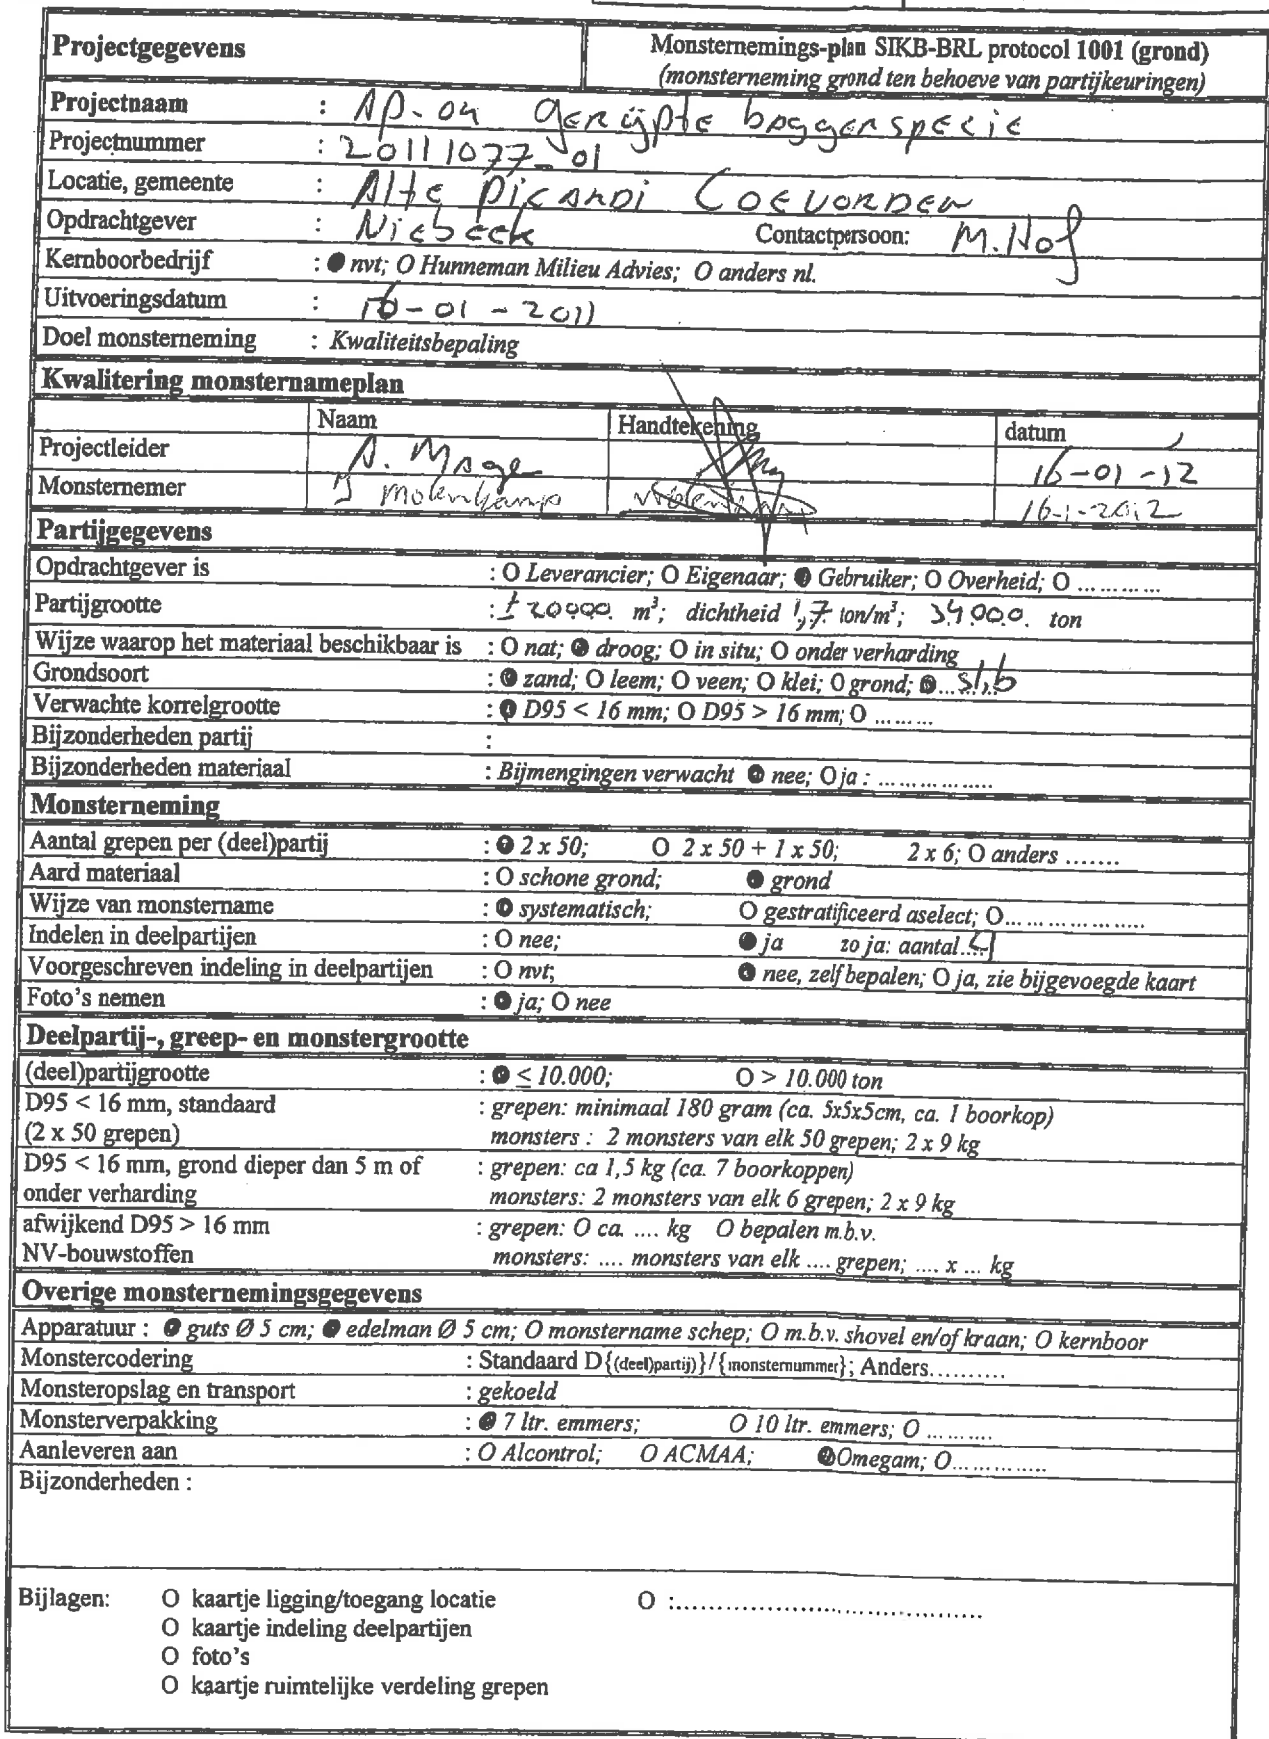 Projectgegevens Monsternemings-plan SIKB-BRL protocol 1001 (grond)
(monsterneming grond ten behoeve van partijkeuringen)
Projectnaam : AP-04 gerijpte baggerspecie
Projectnummer : 20111077-01
Locatie, gemeente : Alte Picardi Coevorden
Opdrachtgever : Niebeek Contactpersoon: M. Hof
Kernboorbedrijf : ● nvt; O Hunneman Milieu Advies; O anders nl.
Uitvoeringsdatum : 16-01-2011
Doel monsterneming : Kwaliteitsbepaling
Kwalitering monsternameplan
Naam Handtekening datum
Projectleider A. Mager 16-01-12
Monsternemer J Molenkamp 16-1-2012
Partijgegevens
Opdrachtgever is : O Leverancier; O Eigenaar; ● Gebruiker; O Overheid; O ............
Partijgrootte : ± 20.000. m³; dichtheid 1,7 ton/m³; 34.000. ton
Wijze waarop het materiaal beschikbaar is : O nat; ● droog; O in situ; O onder verharding
Grondsoort : ● zand; O leem; O veen; O klei; O grond; ● ...slib
Verwachte korrelgrootte : ● D95 < 16 mm; O D95 > 16 mm; O .........
Bijzonderheden partij :
Bijzonderheden materiaal : Bijmengingen verwacht ● nee; O ja : ................
Monsterneming
Aantal grepen per (deel)partij : ● 2 x 50; O 2 x 50 + 1 x 50; 2 x 6; O anders .......
Aard materiaal : O schone grond; ● grond
Wijze van monstername : ● systematisch; O gestratificeerd aselect; O...................
Indelen in deelpartijen : O nee; ● ja zo ja: aantal...4
Voorgeschreven indeling in deelpartijen : O nvt; ● nee, zelf bepalen; O ja, zie bijgevoegde kaart
Foto's nemen : ● ja; O nee
Deelpartij-, greep- en monstergrootte
(deel)partijgrootte : ● ≤ 10.000; O > 10.000 ton
D95 < 16 mm, standaard : grepen: minimaal 180 gram (ca. 5x5x5cm, ca. 1 boorkop)
(2 x 50 grepen) monsters : 2 monsters van elk 50 grepen; 2 x 9 kg
D95 < 16 mm, grond dieper dan 5 m of : grepen: ca 1,5 kg (ca. 7 boorkoppen)
onder verharding monsters: 2 monsters van elk 6 grepen; 2 x 9 kg
afwijkend D95 > 16 mm : grepen: O ca. .... kg O bepalen m.b.v.
NV-bouwstoffen monsters: .... monsters van elk .... grepen; .... x ... kg
Overige monsternemingsgegevens
Apparatuur : ● guts Ø 5 cm; ● edelman Ø 5 cm; O monstername schep; O m.b.v. shovel en/of kraan; O kernboor
Monstercodering : Standaard D{(deel)partij)}/{monsternummer}; Anders..........
Monsteropslag en transport : gekoeld
Monsterverpakking : ● 7 ltr. emmers; O 10 ltr. emmers; O ..........
Aanleveren aan : O Alcontrol; O ACMAA; ● Omegam; O..............
Bijzonderheden :
Bijlagen: O kaartje ligging/toegang locatie O :......................................
O kaartje indeling deelpartijen
O foto's
O kaartje ruimtelijke verdeling grepen